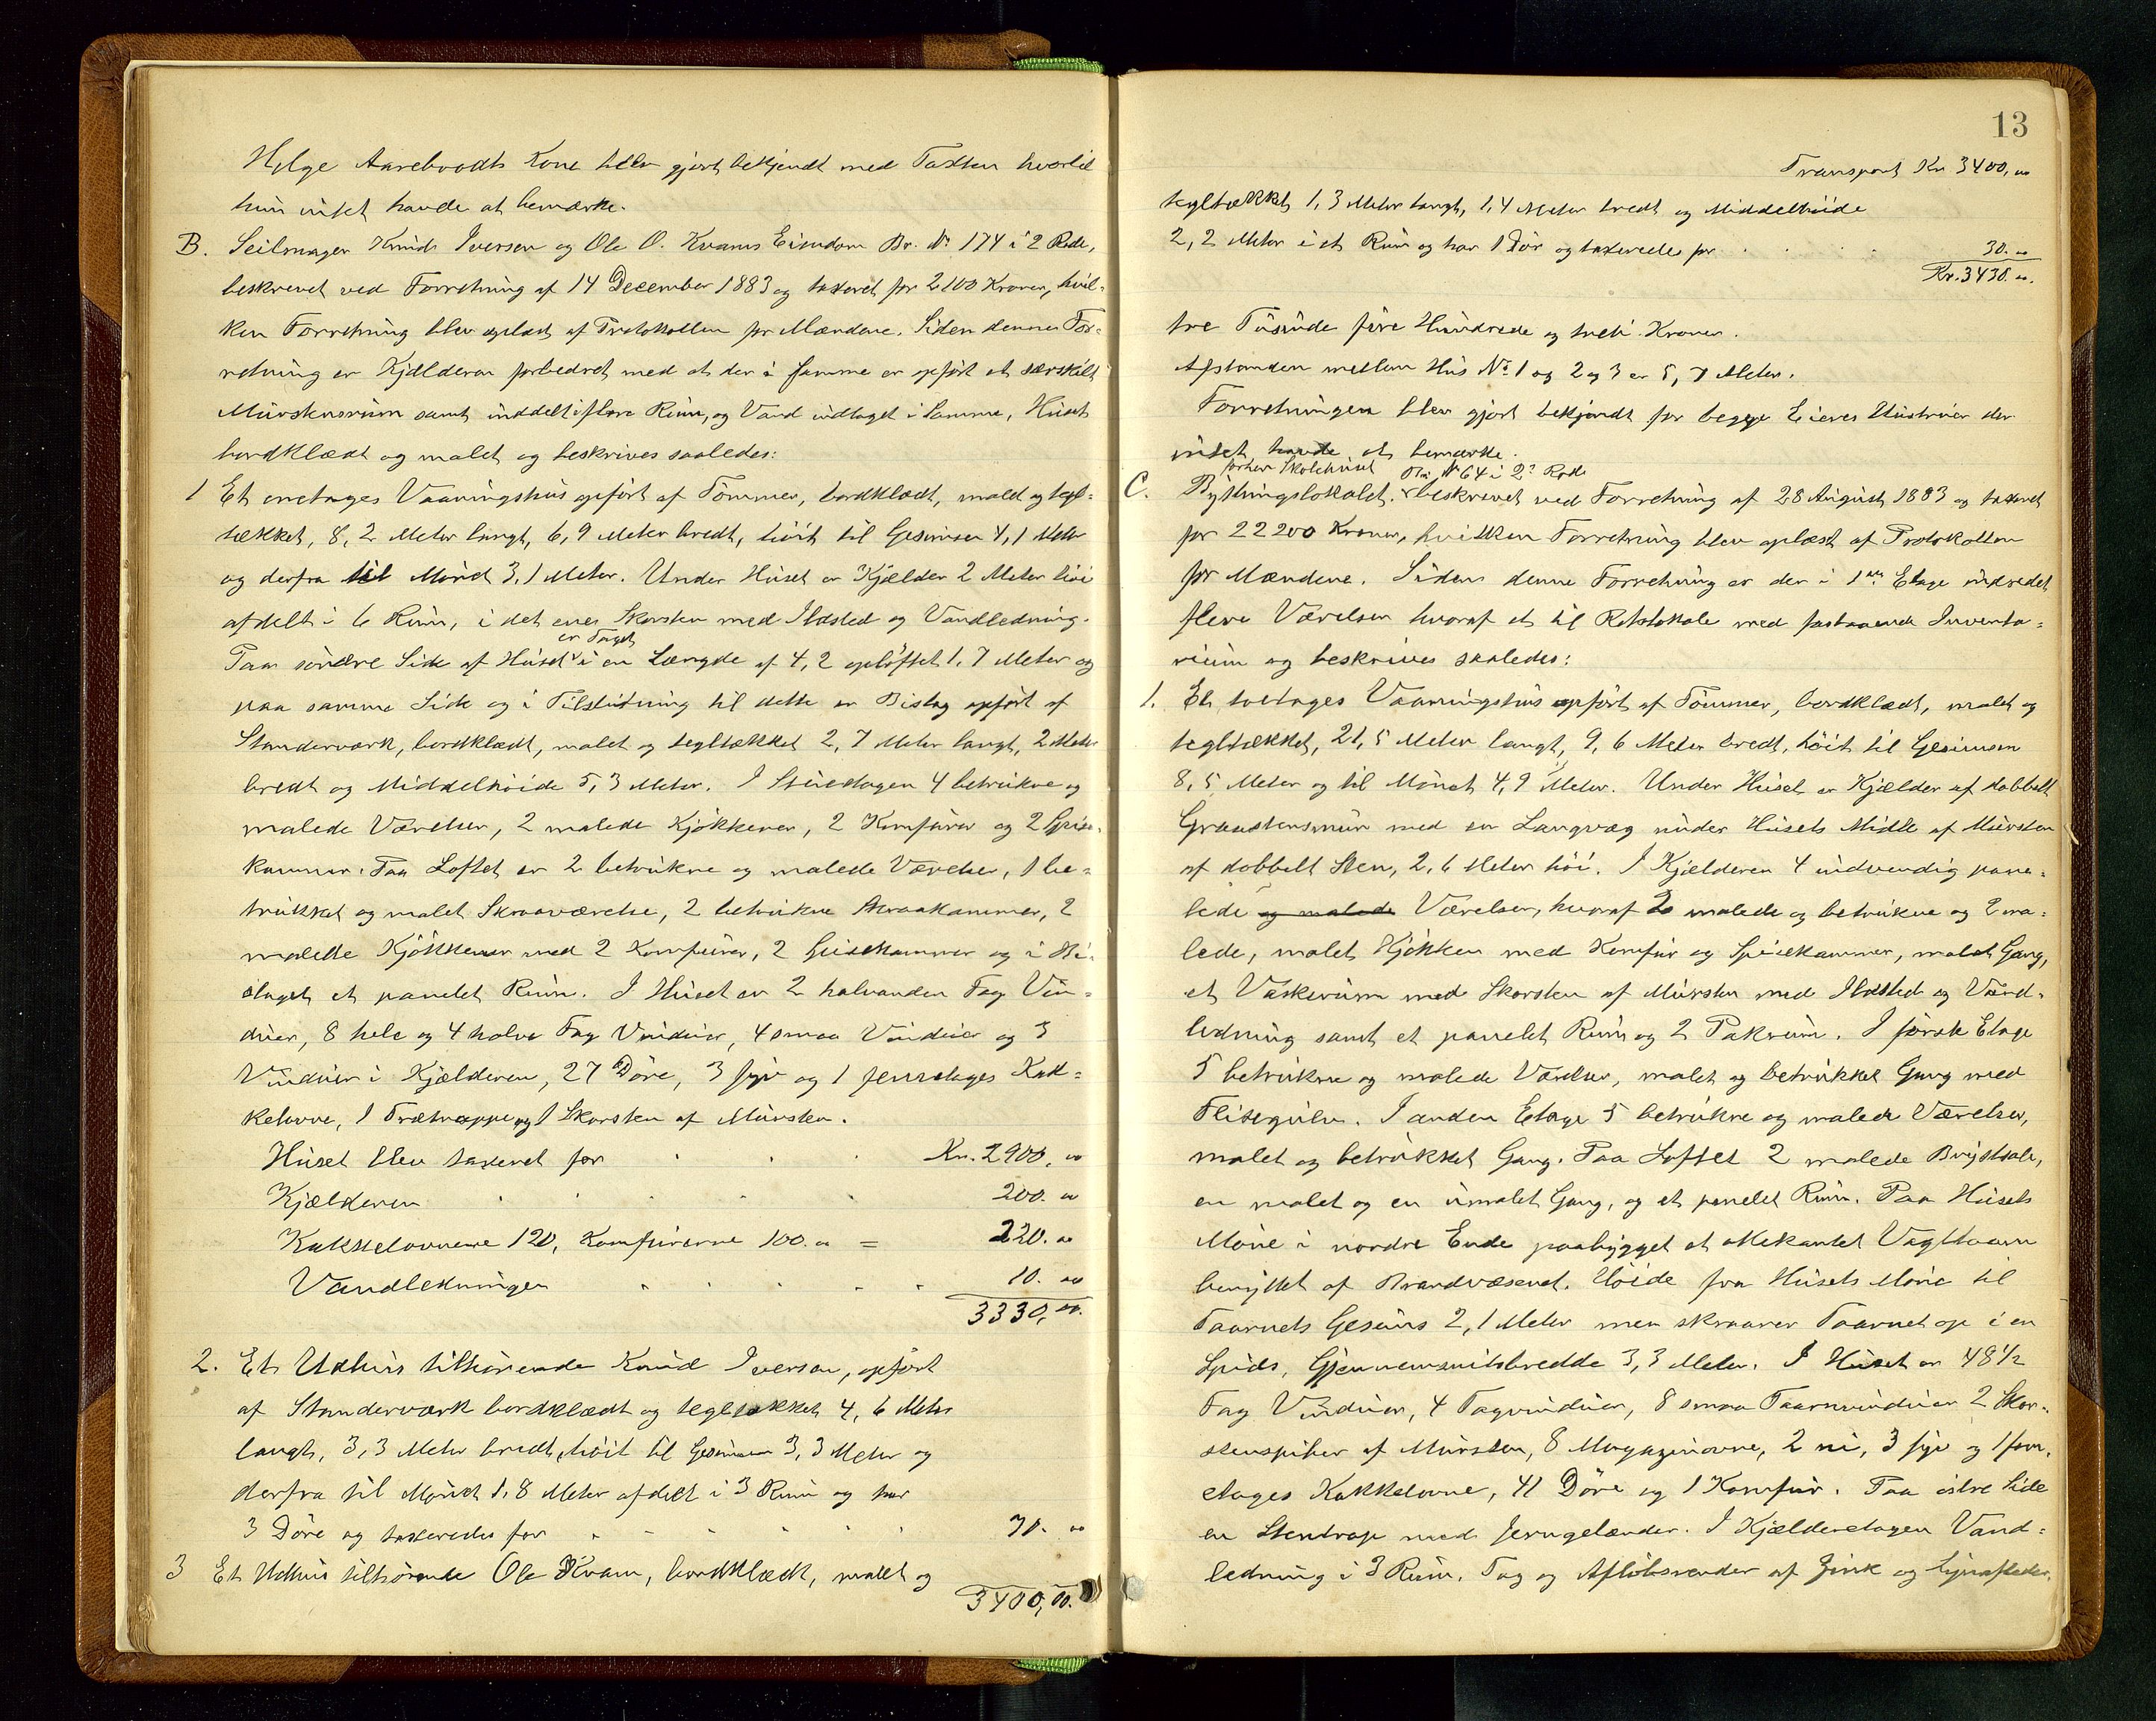 Helge Aarebrodts Kone blev gjort bekjendt med Taxten hvortil
hun intet havde at bemærke.
B. Seilmager Knud Iversen og Ole O. Kvams Eiendom Br. No 174 i 2 Rode,
beskrevet ved Forretning af 14 December 1883 og taxeret for 2100 Kroner, hvil-
ken Forretning blev oplæst af Protokollen for Mændene. Siden denne For-
retning er Kjælderen forbedret med at der i samme er opført et særskilt
Murstensrum samt inddelt i flere Rum, og Vand indtaget i samme, Huset
bordklædt og malet og beskrives saaledes:
1 Et enetages Vaaningshus opført af Tømmer, bordklædt, malet og tegl-
tækket, 8,2 Meter langt, 6,9 Meter bredt, høit til Gesimsen 4,1 Meter
og derfra til Mønet 3,1 Meter. Under Huset er Kjælder 2 Meter høi
afdelt i 6 Rum, i det ene Skorsten med Ildsted og Vandledning.
er Taget
Paa søndre Side af Huset i en Længde af 4,2 opløftet 1,7 Meter og
paa samme Side og i Tilslutning til dette er Bislag opført af
Standerværk, bordklædt, malet og tegltækket 2,7 Meter langt, 2 Meter
bredt og Middelhøide 5,3 Meter. I Stueetagen 4 betrukne og
malede Værelser, 2 malede Kjøkkener, 2 Komfurer og 2 Spise-
kammer. Paa Loftet er 2 betrukne og malede Værelser, 1 be-
trukket og malet Skraaværelse, 2 betrukne Skraakammer, 2
malede Kjøkkener med 2 Komfurer, 2 Spisekammer og i Bi-
slaget et panelet Rum. I Huset er 2 halvanden Fag Vin-
duer, 8 hele og 4 halve Fag Vinduer, 4 smaa Vinduer og 3
Vinduer i Kjælderen, 27 Døre, 3 fyr og 1 femetages Kak-
kelovne, 1 Trætrappe og 1 Skorsten af Mursten.
Huset blev taxeret for Kr. 2900, 00
Kjælderen 200. 00
Kakkelovnene 120, Komfurerne 100. 00 = 220. 00
Vandledningen 10. 00
3330, 00.
2. Et Udhus tilhørende Knud Iversen, opført
af Standerværk bordklædt og tegltækket 4,6 Meter
langt, 3,3 Meter bredt, høit til Gesimsen 3,3 Meter og
derfra til Mønet 1,8 Meter afdelt i 3 Rum og har
3 Døre og taxeredes for 70. 00
3 Et Udhus tilhørende Ole Kvam, bordklædt, malet og
3400,00.
13
Transport Kr 3400,00
tegltækket 1,3 Meter langt, 1,4 Meter bredt og Middelhøide
2,2 Meter i et Rum og har 1 Dør og taxeredes for 30. 00
Kr. 3430. 00.
tre Tusinde fire Hundrede og treti Kroner.
Afstanden mellem Hus No 1 og 2 og 3 er 5,7 Meter.
Forretningen blev gjort bekjendt for begge Eieres Hustruer der
intet havde at bemærke.
forhen Skolehuset Br. No 64 i 2den Rode
C. Bythingslokalet. beskrevet ved Forretning af 28 August 1883 og taxeret
for 22200 Kroner, hvilken Forretning blev oplæst af Protokollen
for Mændene. Siden denne Forretning er der i 1ste Etage indredet
flere Værelser hvoraf et til Retslokale med fastnaaende Inventa-
rium og beskrives saaledes:
1. Et toetages Vaaningshus opført af Tømmer, bordklædt, malet og
tegltækket, 21,5 Meter langt, 9,6 Meter bredt, høit til Gesimsen
8,5 Meter og til Mønet 4,9 Meter. Under Huset er Kjælder af dobbelt
Graastensmur med en Langvæg under Husets Midte af Mursten
af dobbelt Sten, 2,6 Meter høi. I Kjælderen 4 indvendig pane-
lede og malede Værelser, hvoraf 2 malede og betrukne og 2 ma-
lede, malet Kjøkken med Komfur og Spisekammer, malet Gang,
et Vaskerum med Skorsten af Mursten med Ildsted og Vand-
ledning samt et panelet Rum og 2 Pakrum. I første Etage
5 betrukne og malede Værelser, malet og betrukket Gang med
Flisegulv. I anden Etage 5 betrukne og malede Værelser,
malet og betrukket Gang. Paa Loftet 2 malede Brystsale,
en malet og en umalet Gang, og et panelet Rum. Paa Husets
Møne i nordre Ende paabygget et ottekantet Vagttaarn
benyttet af Brandvæsenet. Høide fra Husets Møne til
Taarnets Gesims 2,1 Meter men skraaner Taarnet op i en
Spids, Gjennemsnitsbredde 3,3 Meter. I Huset er 48 1/2
Fag Vinduer, 4 Tagvinduer, 8 smaa Taarnvinduer 2 Skor-
stenspiber af Mursten, 8 Magazinovne, 2 ni, 3 fyr og 1 fem-
etages Kakkelovne, 41 Døre og 1 Komfur. Paa østre Side
en Stentrap med Jerngelænder. I Kjælderetagen Vand-
ledning i 3 Rum. Tag og Afløbsrender af Zink og Lynafleder.